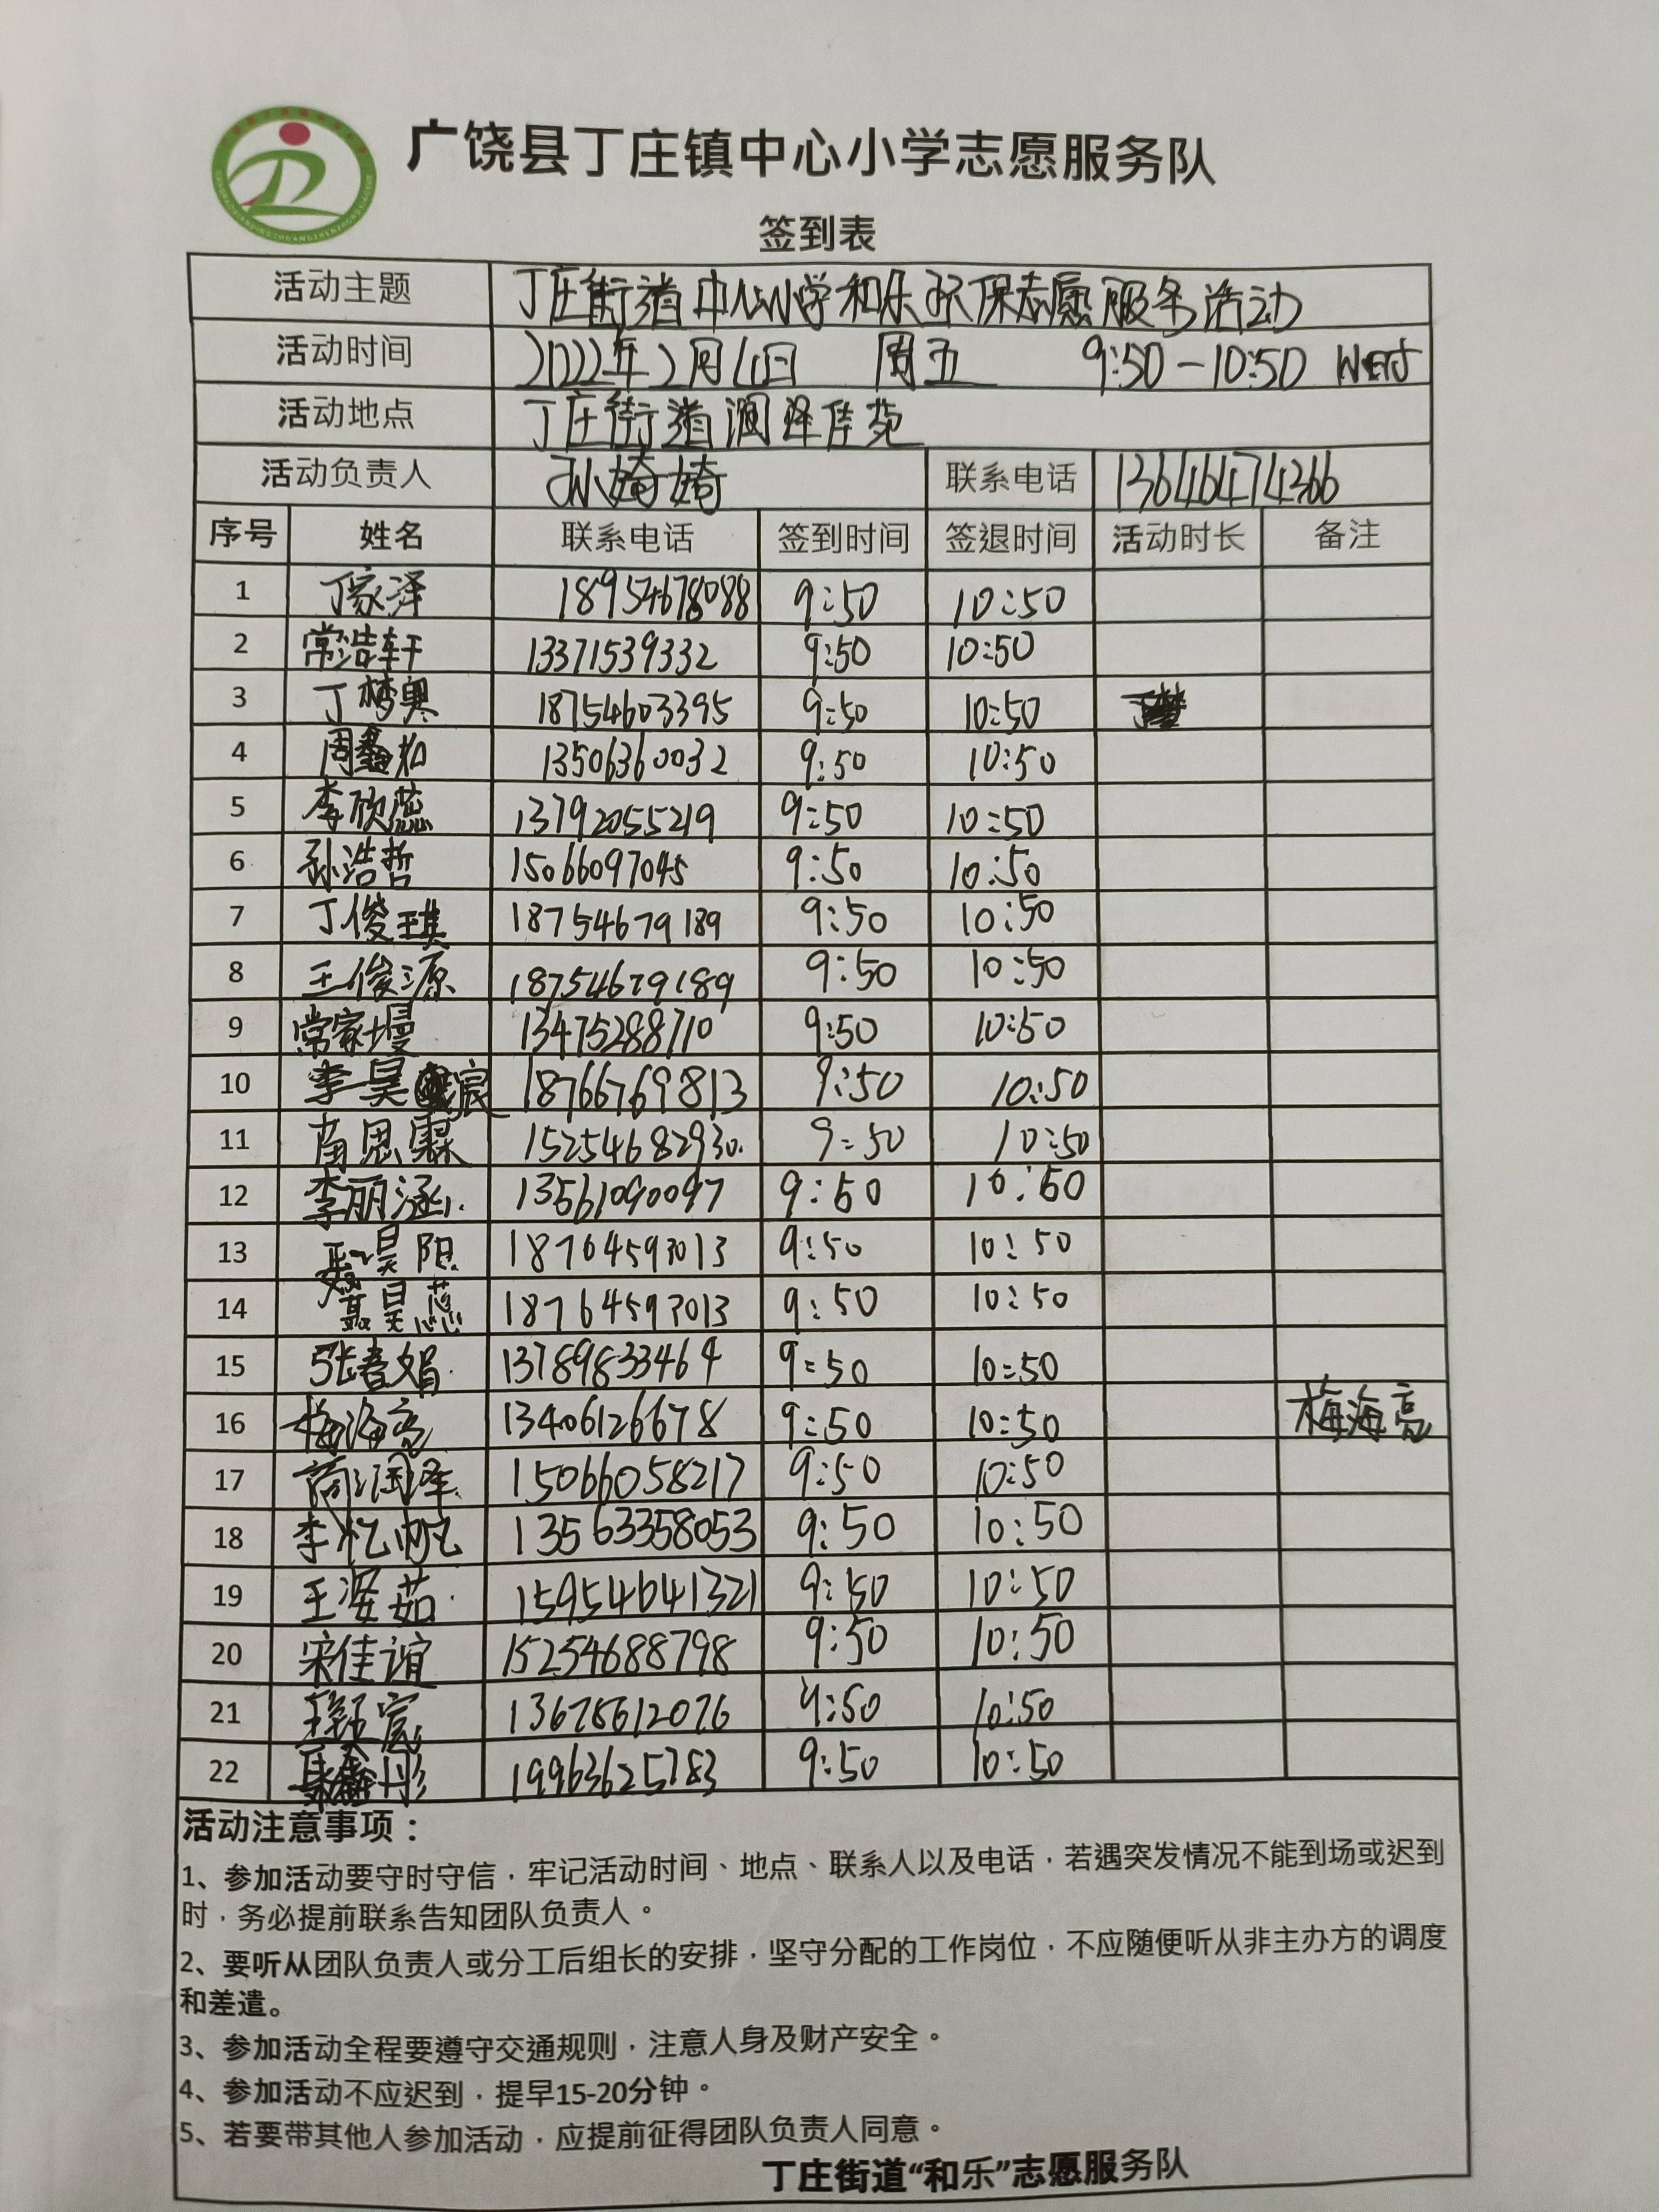 广饶县丁庄镇中心小学志愿服务队
签到表
活动主题 丁庄街道中心小学和乐环保志愿服务活动
活动时间 2022年2月4日 周五 9:50-10:50
活动地点 丁庄街道润泽佳苑
活动负责人 孙婍婍 联系电话 13646474366
序号 姓名 联系电话 签到时间 签退时间 活动时长 备注
1 丁家泽 18954678088 9:50 10:50
2 常浩轩 13371539332 9:50 10:50
3 丁梦奥 18754603395 9:50 10:50
4 周鑫和 13506360032 9:50 10:50
5 李欣蕊 13792055219 9:50 10:50
6 孙浩哲 15066097045 9:50 10:50
7 丁俊琪 18754679189 9:50 10:50
8 王俊源 18754679189 9:50 10:50
9 常家墁 13475288710 9:50 10:50
10 李昊宸 18766769813 9:50 10:50
11 苗思霖 15254682930 9:50 10:50
12 李丽涵 13561090097 9:50 10:50
13 聂昊阳 18764593013 9:50 10:50
14 聂昊蕊 18764593013 9:50 10:50
15 张春娟 13789833464 9:50 10:50
16 梅海亮 13406126678 9:50 10:50 梅海亮
17 商润泽 15066058217 9:50 10:50
18 李忆帆 13563358053 9:50 10:50
19 王姿茹 15954641321 9:50 10:50
20 宋佳谊 15254688798 9:50 10:50
21 13675612076 9:50 10:50
22 19963625783 9:50 10:50
活动注意事项：
1、参加活动要守时守信，牢记活动时间、地点、联系人以及电话，若遇突发情况不能到场或迟到
时，务必提前联系告知团队负责人。
2、要听从团队负责人或分工后组长的安排，坚守分配的工作岗位，不应随便听从非主办方的调度
和差遣。
3、参加活动全程要遵守交通规则，注意人身及财产安全。
4、参加活动不应迟到，提早15-20分钟。
5、若要带其他人参加活动，应提前征得团队负责人同意。
丁庄街道“和乐”志愿服务队